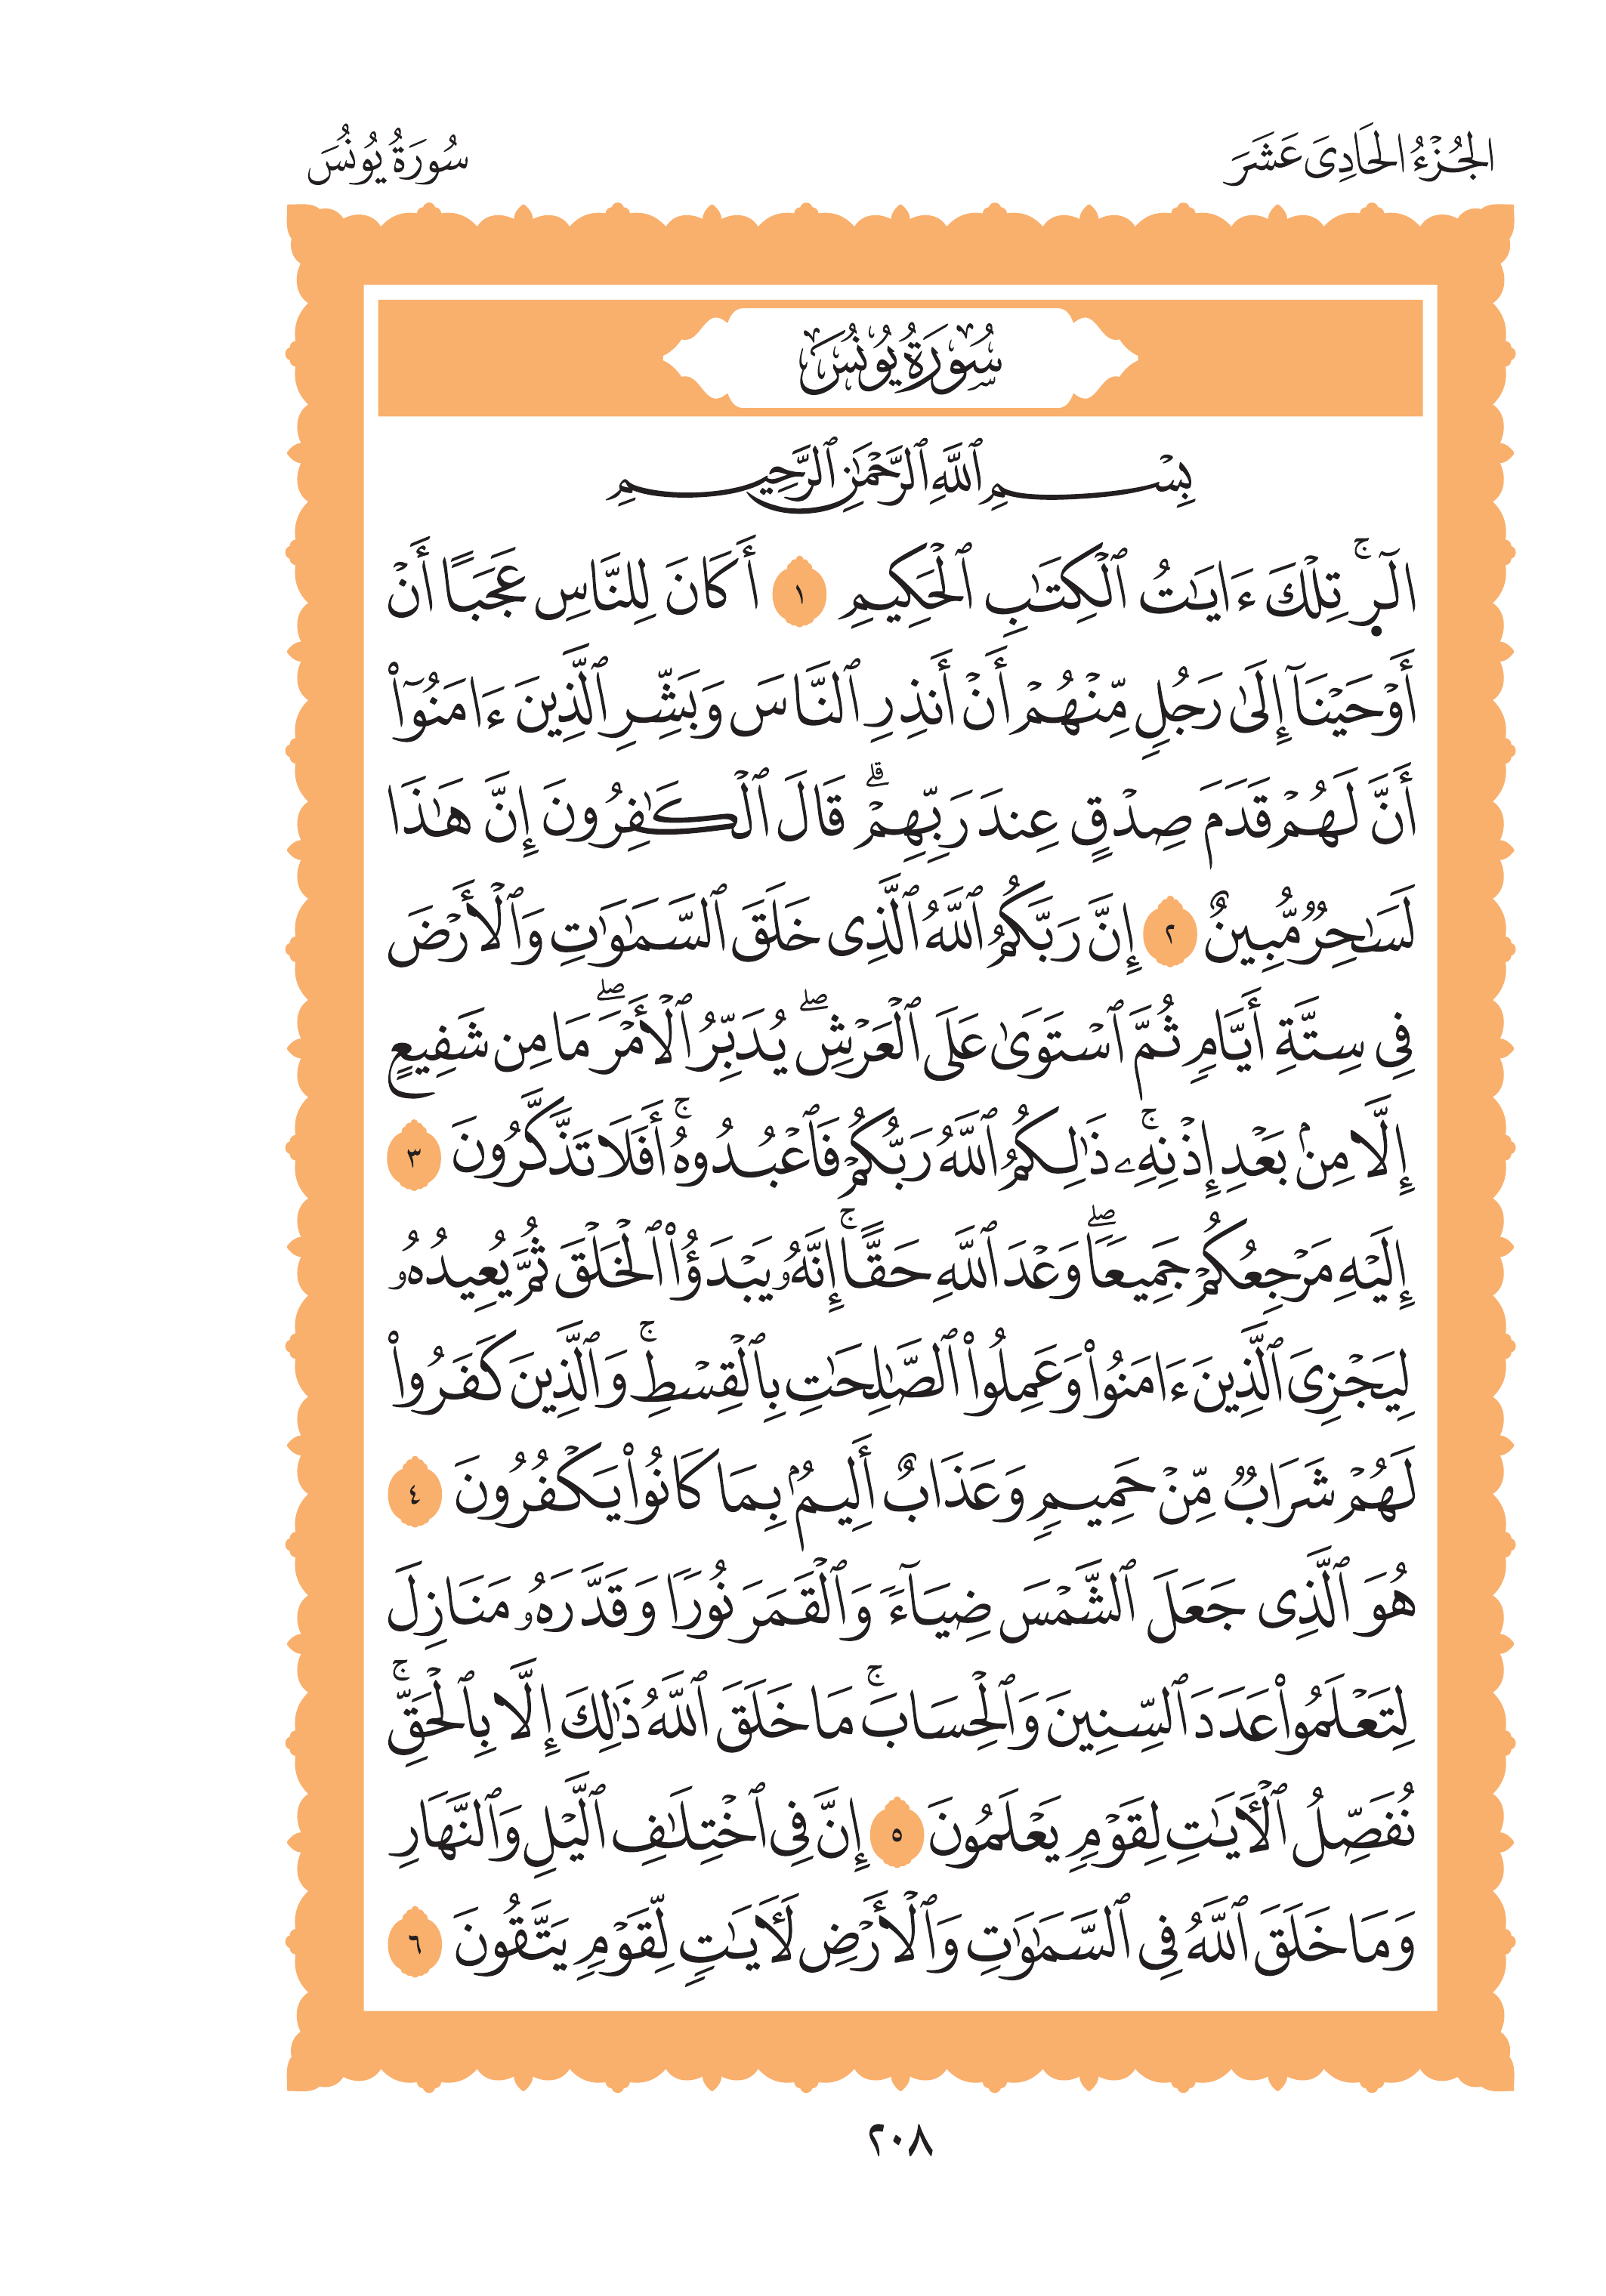 الجُزْءُ الحَادِيَ عَشَرَ
سُورَةُ يُونُسَ
سُورَةُ يُونُسَ
بِسْمِ ٱللَّهِ ٱلرَّحْمَٰنِ ٱلرَّحِيمِ
الٓرۚ تِلْكَ ءَايَٰتُ ٱلْكِتَٰبِ ٱلْحَكِيمِ ١ أَكَانَ لِلنَّاسِ عَجَبًا أَنْ
أَوْحَيْنَآ إِلَىٰ رَجُلٍ مِّنْهُمْ أَنْ أَنذِرِ ٱلنَّاسَ وَبَشِّرِ ٱلَّذِينَ ءَامَنُوٓا۟
أَنَّ لَهُمْ قَدَمَ صِدْقٍ عِندَ رَبِّهِمْۗ قَالَ ٱلْكَٰفِرُونَ إِنَّ هَٰذَا
لَسَٰحِرٌ مُّبِينٌ ٢ إِنَّ رَبَّكُمُ ٱللَّهُ ٱلَّذِى خَلَقَ ٱلسَّمَٰوَٰتِ وَٱلْأَرْضَ
فِى سِتَّةِ أَيَّامٍ ثُمَّ ٱسْتَوَىٰ عَلَى ٱلْعَرْشِۖ يُدَبِّرُ ٱلْأَمْرَۖ مَا مِن شَفِيعٍ
إِلَّا مِنۢ بَعْدِ إِذْنِهِۦۚ ذَٰلِكُمُ ٱللَّهُ رَبُّكُمْ فَٱعْبُدُوهُۚ أَفَلَا تَذَكَّرُونَ ٣
إِلَيْهِ مَرْجِعُكُمْ جَمِيعًاۖ وَعْدَ ٱللَّهِ حَقًّاۚ إِنَّهُۥ يَبْدَؤُا۟ ٱلْخَلْقَ ثُمَّ يُعِيدُهُۥ
لِيَجْزِىَ ٱلَّذِينَ ءَامَنُوا۟ وَعَمِلُوا۟ ٱلصَّٰلِحَٰتِ بِٱلْقِسْطِۚ وَٱلَّذِينَ كَفَرُوا۟
لَهُمْ شَرَابٌ مِّنْ حَمِيمٍ وَعَذَابٌ أَلِيمٌۢ بِمَا كَانُوا۟ يَكْفُرُونَ ٤
هُوَ ٱلَّذِى جَعَلَ ٱلشَّمْسَ ضِيَآءً وَٱلْقَمَرَ نُورًا وَقَدَّرَهُۥ مَنَازِلَ
لِتَعْلَمُوا۟ عَدَدَ ٱلسِّنِينَ وَٱلْحِسَابَۚ مَا خَلَقَ ٱللَّهُ ذَٰلِكَ إِلَّا بِٱلْحَقِّۚ
نُفَصِّلُ ٱلْءَايَٰتِ لِقَوْمٍ يَعْلَمُونَ ٥ إِنَّ فِى ٱخْتِلَٰفِ ٱلَّيْلِ وَٱلنَّهَارِ
وَمَا خَلَقَ ٱللَّهُ فِى ٱلسَّمَٰوَٰتِ وَٱلْأَرْضِ لَءَايَٰتٍ لِّقَوْمٍ يَتَّقُونَ ٦
٢٠٨